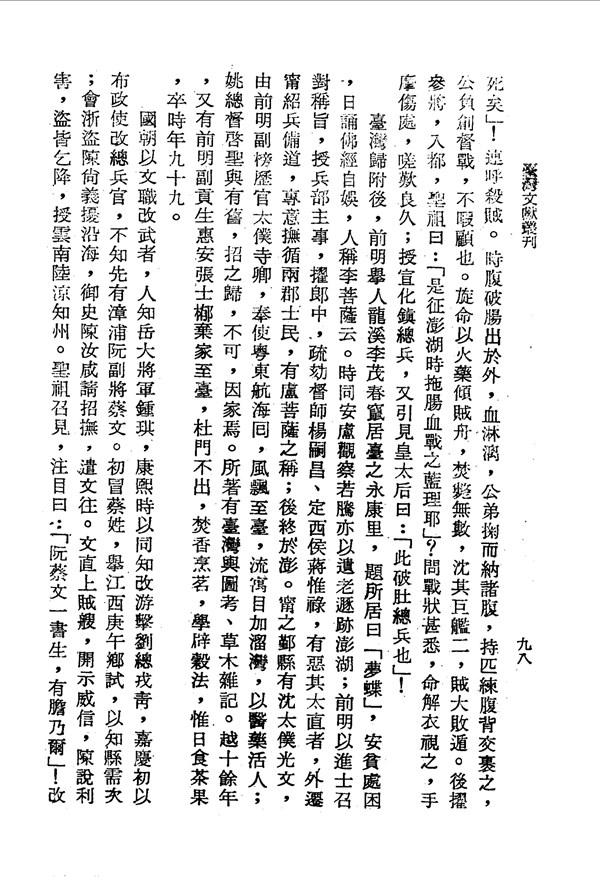 臺灣文獻叢刊
九八
死矣」！連呼殺賊。時腹破腸出於外，血淋漓，公弟掬而納諸腹，持匹練腹背交裹之，
公負創督戰，不暇顧也。旋命以火藥傾賊舟，焚斃無數，沈其巨艦二，賊大敗遁。後擢
參將，入都，聖祖曰：「是征澎湖時拖腸血戰之藍理耶」？問戰狀甚悉，命解衣視之，手
摩傷處，嗟歎良久；授宣化鎮總兵，又引見皇太后曰：「此破肚總兵也」！
臺灣歸附後，前明舉人龍溪李茂春竄居臺之永康里，題所居曰「夢蝶」，安貧處困
，日誦佛經自娛，人稱李菩薩云。時同安盧觀察若騰亦以遺老遯跡澎湖；前明以進士召
對稱旨，授兵部主事，擢郎中，疏劾督師楊嗣昌、定西侯蔣惟祿，有惡其太直者，外遷
甯紹兵備道，專意撫循兩郡士民，有盧菩薩之稱；後終於澎。甯之鄞縣有沈太僕光文，
由前明副榜歷官太僕寺卿，奉使粵東航海回，風飄至臺，流寓目加溜灣，以醫藥活人；
姚總督啓聖與有舊，招之歸，不可，因家焉。所著有臺灣輿圖考、草木雜記。越十餘年
，又有前明副貢生惠安張士㮋棄家至臺，杜門不出，焚香烹茗，學辟穀法，惟日食茶果
，卒時年九十九。
國朝以文職改武者，人知岳大將軍鍾琪，康熙時以同知改游擊劉總戎靑，嘉慶初以
布政使改總兵官，不知先有漳浦阮副將蔡文。初冒蔡姓，舉江西庚午鄉試，以知縣需次
；會浙盜陳尙義擾沿海，御史陳汝咸請招撫，遣文往。文直上賊艘，開示威信，陳說利
害，盜皆乞降，授雲南陸涼知州。聖祖召見，注目曰：「阮蔡文一書生，有膽乃爾」！改